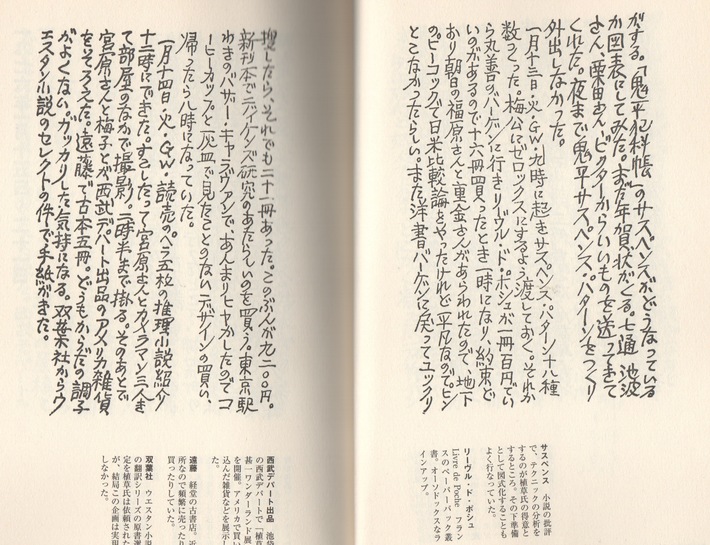 がする。「鬼平犯科帳」のサスペンスがどうなっている
か図表にしてみた。まだ年賀状がくる。七通 池波
さん、栗田さん、ビクターからいいものを送ってきて
くれた。夜まで鬼平サスペンス・パターンをつくり
外出しなかった。
一月十三日・火・G・W・九時に起きサスペンス・パターン十八種
数つくった。梅公にゼロックスにするよう渡しておく。それか
ら丸善のバーゲンに行きリーヴル・ド・ポシュが一冊百円でい
いのがあるので十六冊買ったとき一時になり、約束ど
おり朝日の福原さんと重金さんがあらわれたので、地下
のピーコックで日米比較論をやったけれど平凡なのでピン
とこなかったらしい。また洋書バーゲンに戻ってユックリ
サスペンス 小説の批評
で、テクニックの分析を
するのが植草氏の得意と
するところ。その下準備
として図式化することも
よく行なっていた。
リーヴル・ド・ポシュ
Livre de Poche フラン
スのペーパーバック叢
書。オーソドックスなラ
インアップ。
捜したら、それでも二十一冊あった。このぶんが九二〇〇円。
新刊本でディケンズ研究のあたらしいのを買う。東京駅
わきのバザー・キャラヴァンで、あんまりヒヤかしたのでコ
ーヒーカップと灰皿で見たことのないデザインの買い、
帰ったら八時になっていた。
一月十四日・火・G・W・読売のペラ五枚の推理小説紹介
十二時にできた。すこしたって宮原さんとカメラマン三人き
て部屋のなかで撮影。二時半まで掛る。そのあとで
宮原さんと梅子とが西武デパート出品のアメリカ雑貨
をそろえた。遠藤で古本五冊。どうもからだの調子
がよくない。ガッカリした気持になる。双葉社からウ
エスタン小説のセレクトの件で手紙がきた。
西武デパート出品 池袋
の西武デパートで「植草
甚一ワンダーランド展
を開催。アメリカで買い
込んだ雑貨などを展示し
た。
遠藤 経堂の古書店。近
所なので頻繁に売ったり
買ったりしていた。
双葉社 ウエスタン小説
の翻訳シリーズの原書選
定を植草氏は依頼された
が、結局この企画は実現
しなかった。